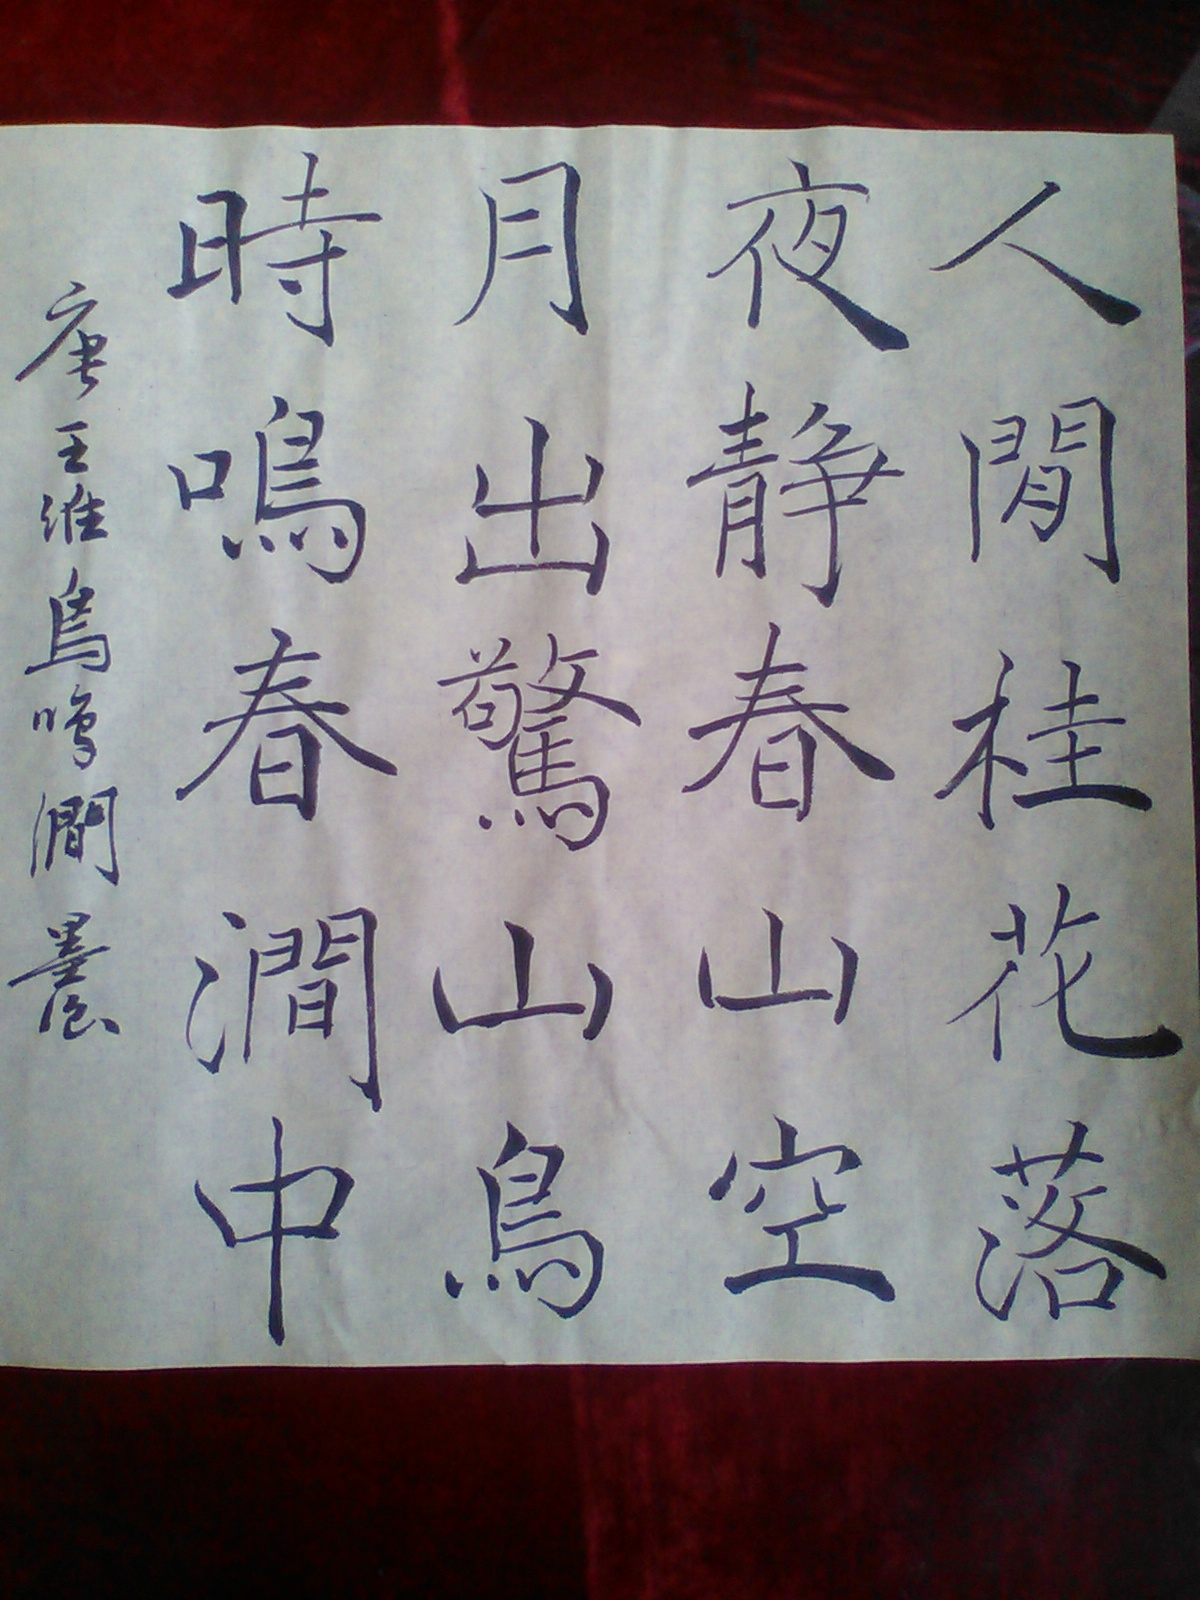 人閒桂花落
夜静春山空
月出驚山鳥
時鳴春澗中
唐王維鳥鳴澗 墨農